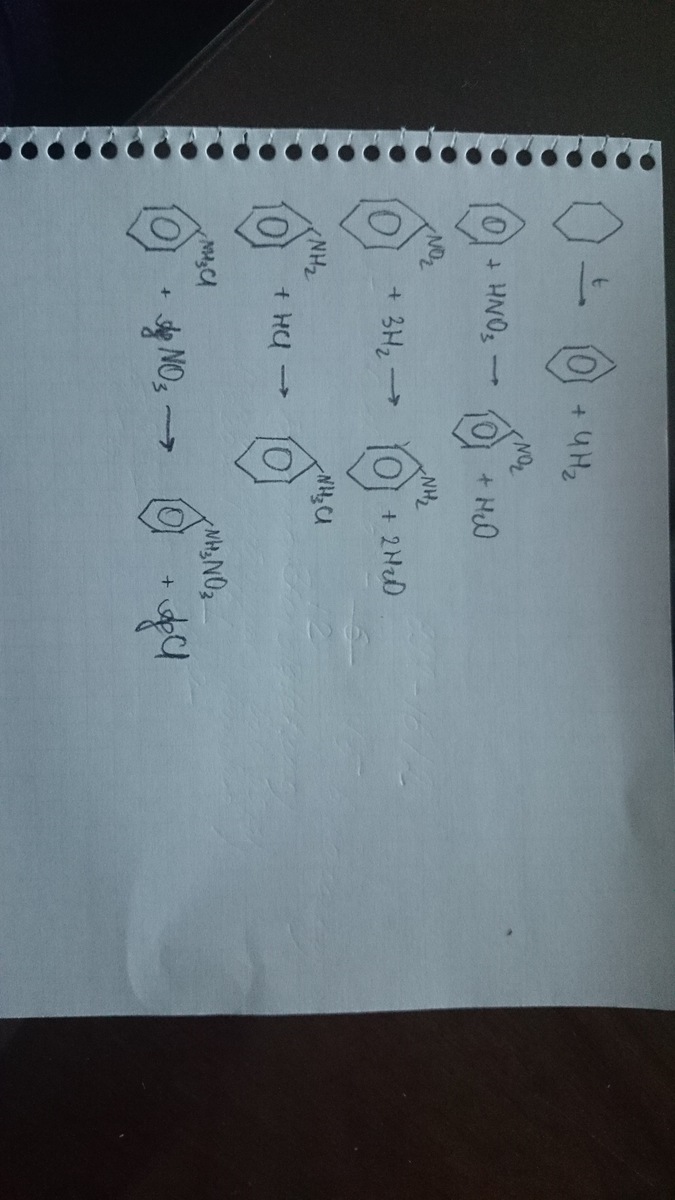 t → + 4H₂
+ HNO₃ → NO₂ + H₂O
NO₂ + 3H₂ → NH₂ + 2H₂O
NH₂ + HCl → NH₃Cl
NH₃Cl + AgNO₃ → NH₃NO₃ + AgCl